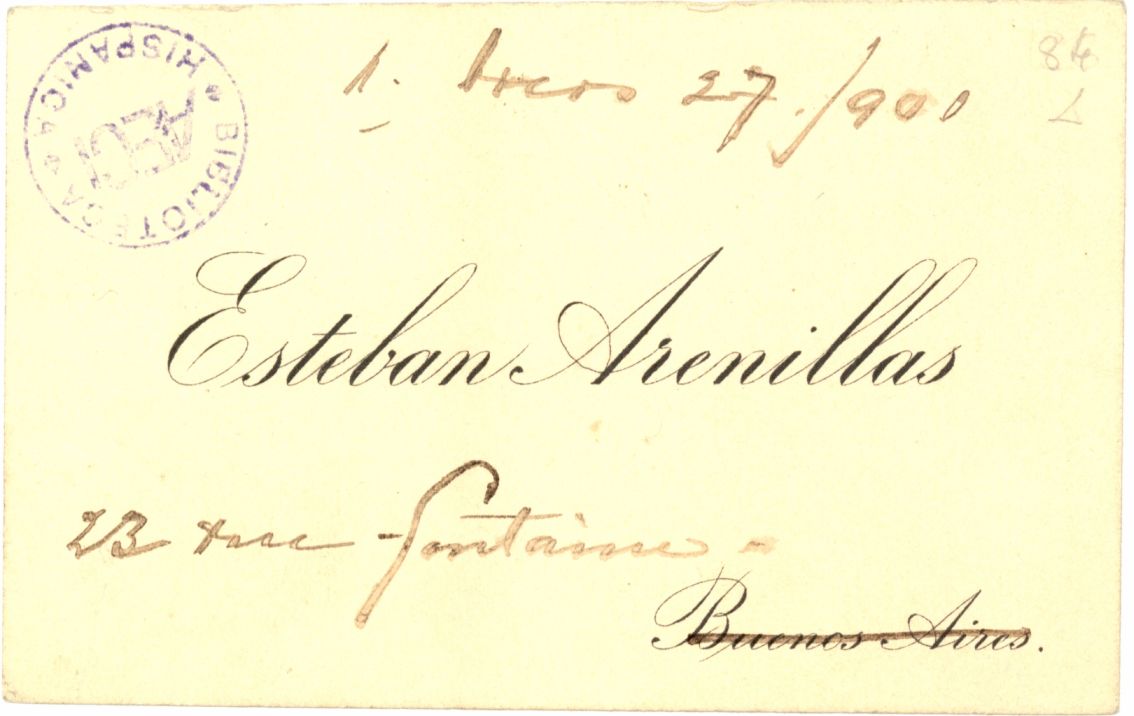 BIBLIOTECA HISPANICA
27/900
84
Esteban Arenillas
23 rue Fontaine -
Buenos Aires.